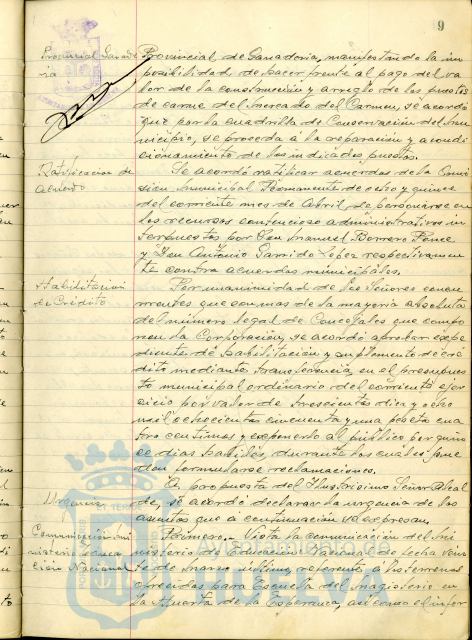 9
Provincial Ganade
ria
Provincial de Ganaderia, manifestando la im
posibilidad de hacer frente al pago del va
lor de la construcción y arreglo de los puestos
de carne del Mercado del Carmen, se acordó
que por la cuadrilla de Conservación del Mu
nicipio, se proceda á la reparación y acondi
cionamiento de los indicados puestos.
Ratificacion de
acuerdo
Se acordó ratificar acuerdos de la Comi
sión Municipal Permanente de ocho y quince
del corriente mes de Abril, de personarse en
los recursos contencioso administrativos in
terpuestos por Don Manuel Borrero Ponce
y Don Antonio Garrido Lopez respectivamen
te contra acuerdos municipales.
Habilitacion
de Crédito
Por unanimidad de los Señores concu
rrentes que son mas de la mayoria absoluta
del número legal de Concejales que compo
nen la Corporación, se acordó aprobar expe
diente de habilitación y suplemento de cré
dito mediante transferencia, en el presupues
to municipal ordinario del corriente ejer
cicio por valor de trescientas diez y ocho
mil ochocientas cincuenta y una peseta cua
tro centimos y exponerlo al público por quin
ce dias habiles, durante los cuales pue
den formularse reclamaciones.
Urgencia
A propuesta del Ilustrisimo Señor Alcal
de, se acordó declarar la urgencia de los
asuntos que á continuación se expresan.
Comunicación mi
nisterio Educa
ción Nacional
Primero. Vista la comunicación del Mi
nisterio de Educación Nacional de fecha vein
te de marzo último, referente á los terrenos
ofrecidos para Escuela del Magisterio en
la Huerta de la Esperanza, asi como el infor